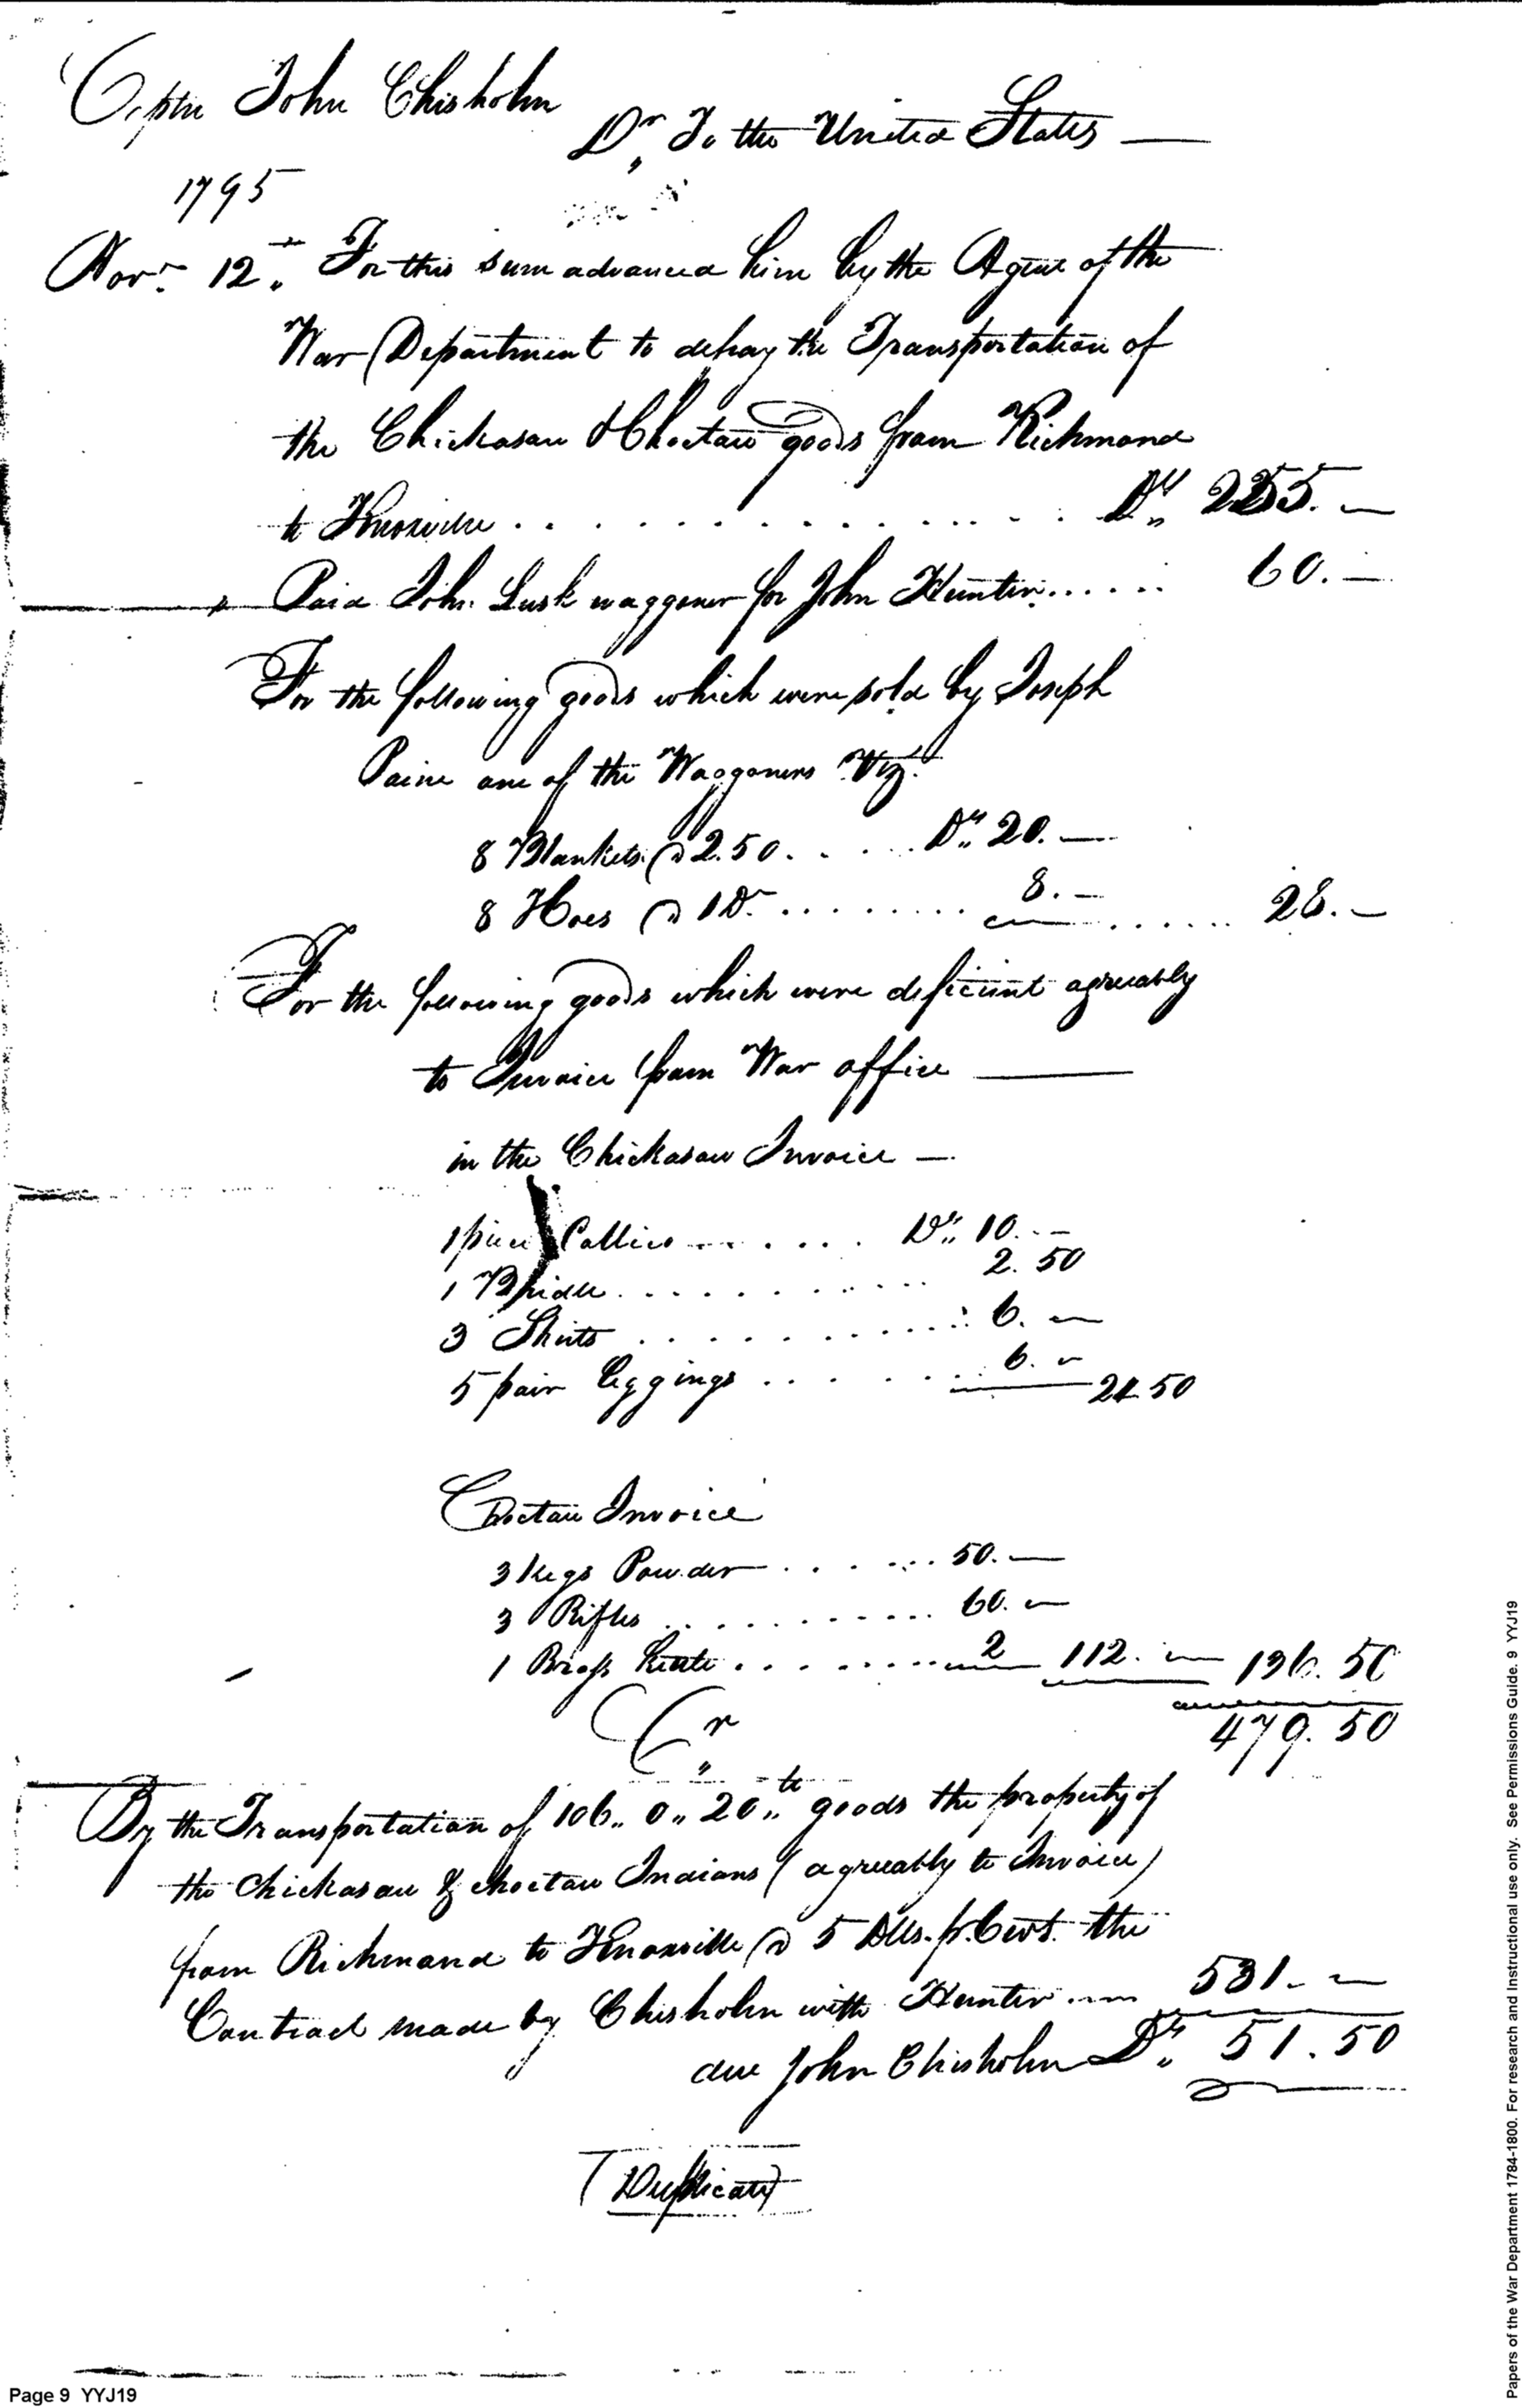 Captn John Chisholm
Dr. To the United States —
1795
Novr. 12th. For this sum advanced him by the Agent of the
War Department to defray the Transportation of
the Chickasaw & Choctaw goods from Richmond
to Knoxville . . . . . . . . . . Drs. 255. —
" Paid John Lusk waggoner for John Hunter...... 60. —
For the following goods which were sold by Joseph
Paine one of the Waggoners Viz.
8 Blankets @ 2.50. . . . . Drs. 20. —
8 Hoes @ 1 Dr. . . . . . . . 8. — . . . . . . 28. —
For the following goods which were deficient agreeably
to Invoice from War office —
in the Chickasaw Invoice —
1 piece Callico . . . . . . Drs. 10. —
1 Bridle . . . . . . . . . 2. 50
3 Shirts . . . . . . . . . 6. —
5 pair leggings . . . . . . 6. — 24 50
Choctaw Invoice
3 kegs Powder . . . . . . 50. —
3 Rifles . . . . . . . . . 60. —
1 Brass kettle . . . . . . 2 112. — 136. 50
479. 50
Cr.
By the Transportation of 106.. 0.. 20.. lb goods the property of
the Chickasaw & Choctaw Indians (agreeably to Invoice)
from Richmond to Knoxville @ 5 Dlls. pr. Cwt. the
Contract made by Chisholm with Hunter .... 531. —
due John Chisholm Drs. 51. 50
(Duplicate)
Page 9 YYJ19
Papers of the War Department 1784-1800. For research and Instructional use only. See Permissions Guide. 9 YYJ19